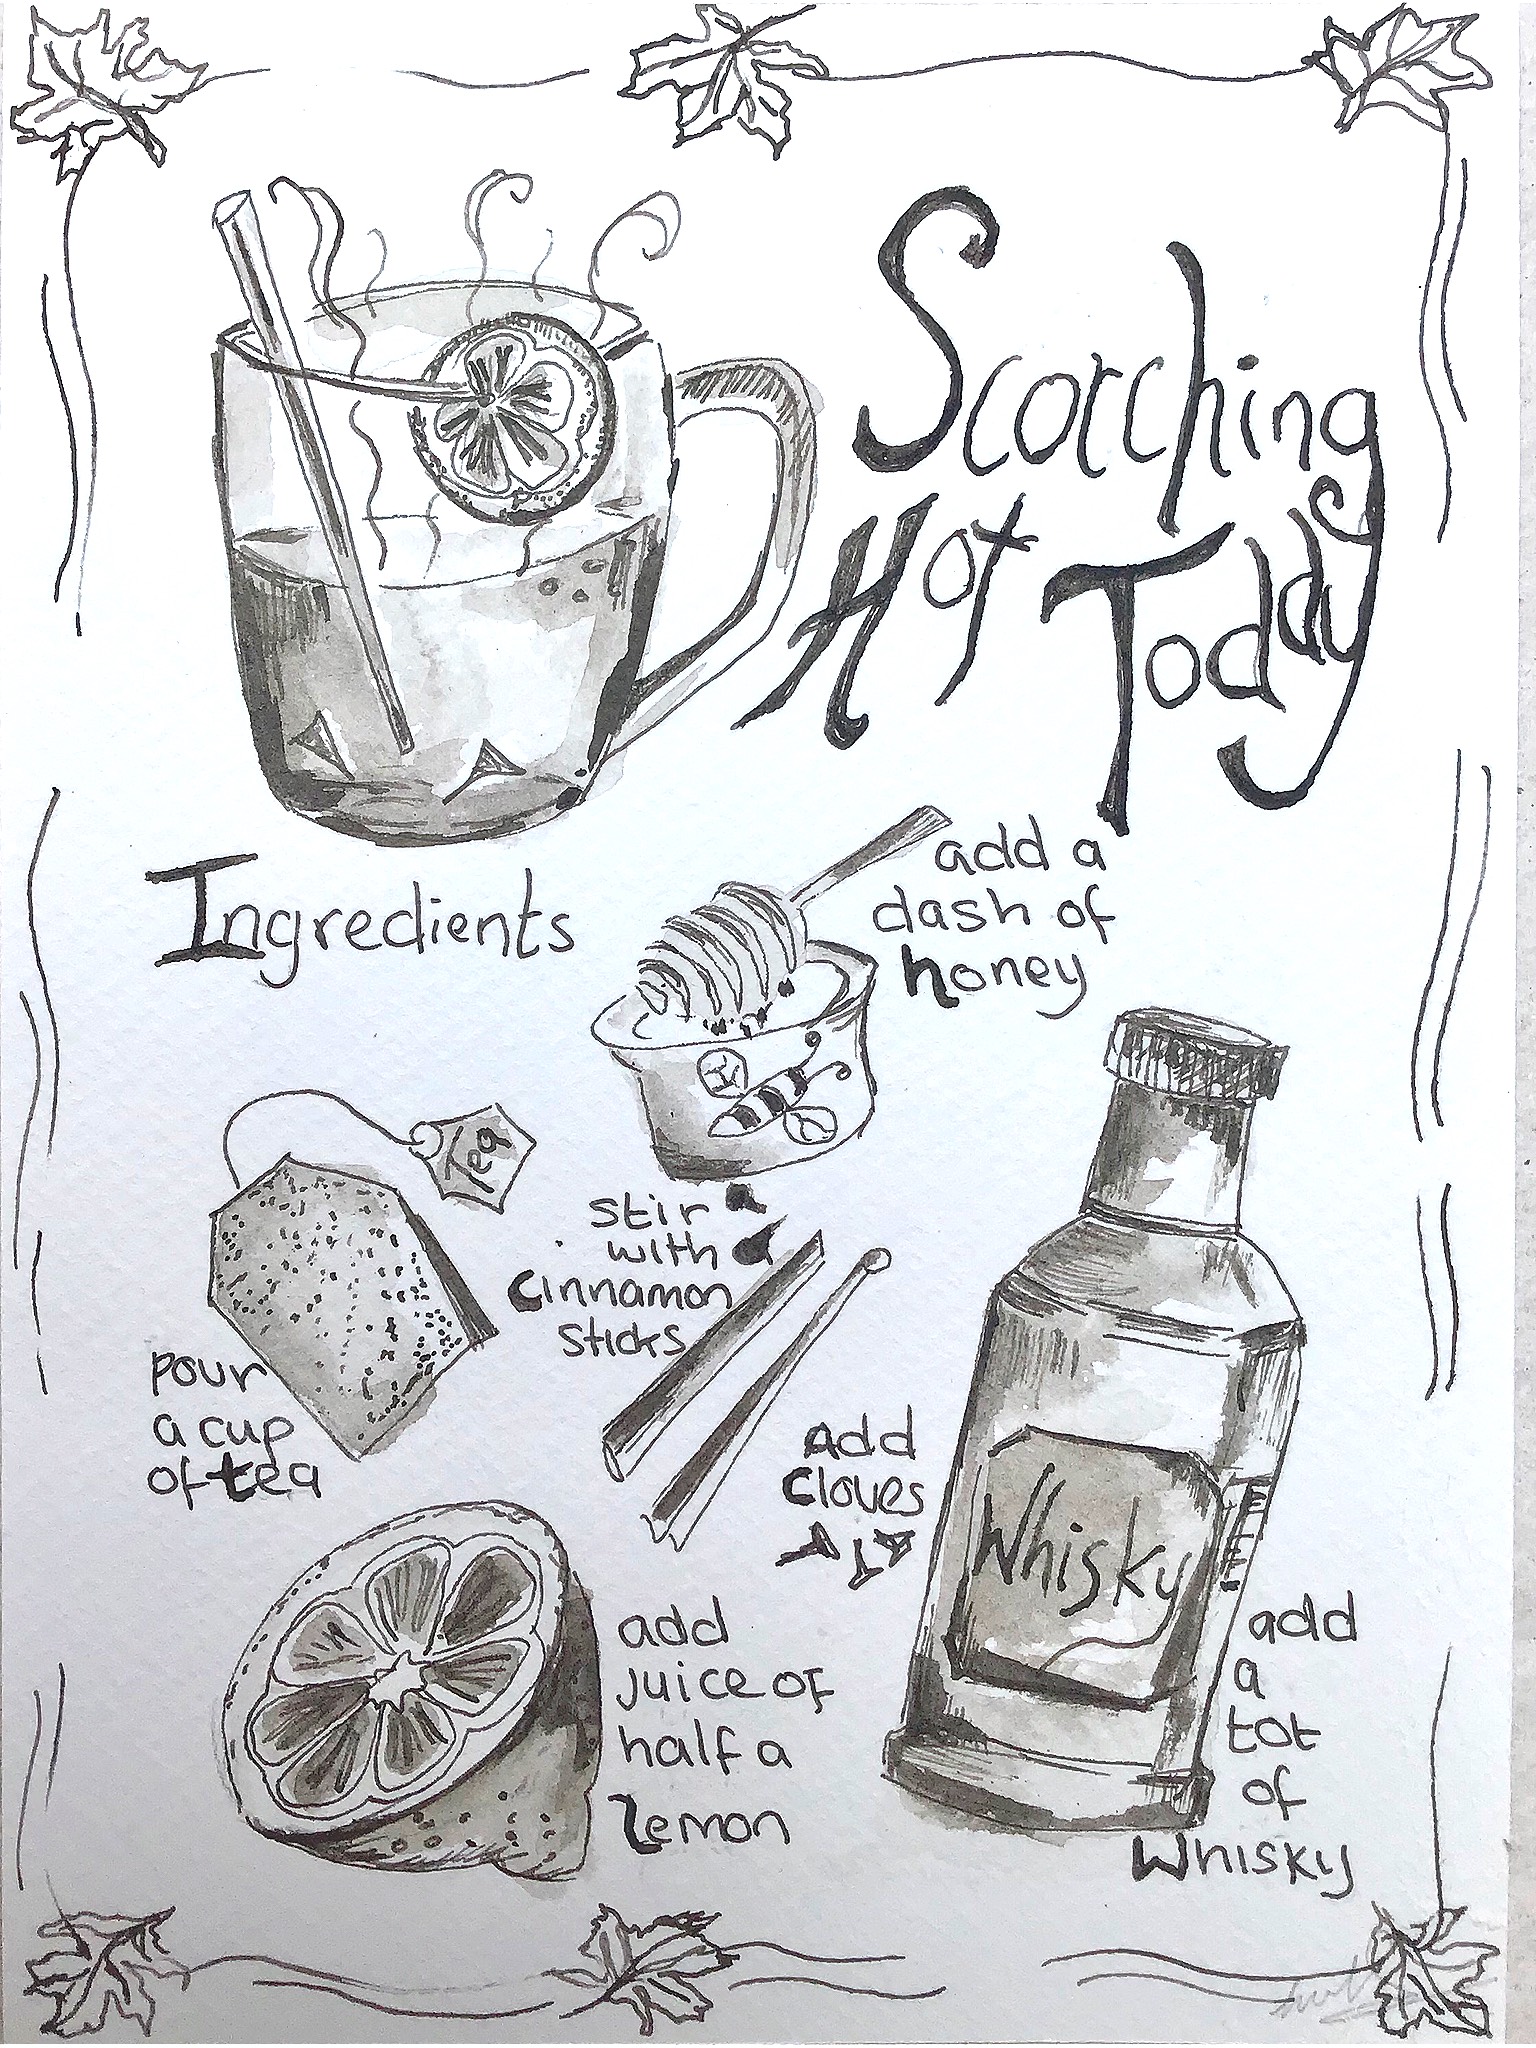 Scorching
Hot Toddy
Ingredients
add a
dash of
honey
Tea
stir
with
cinnamon
sticks
pour
a cup
of tea
Add
cloves
Whisky
add
juice of
half a
lemon
add
a
tot
of
Whisky